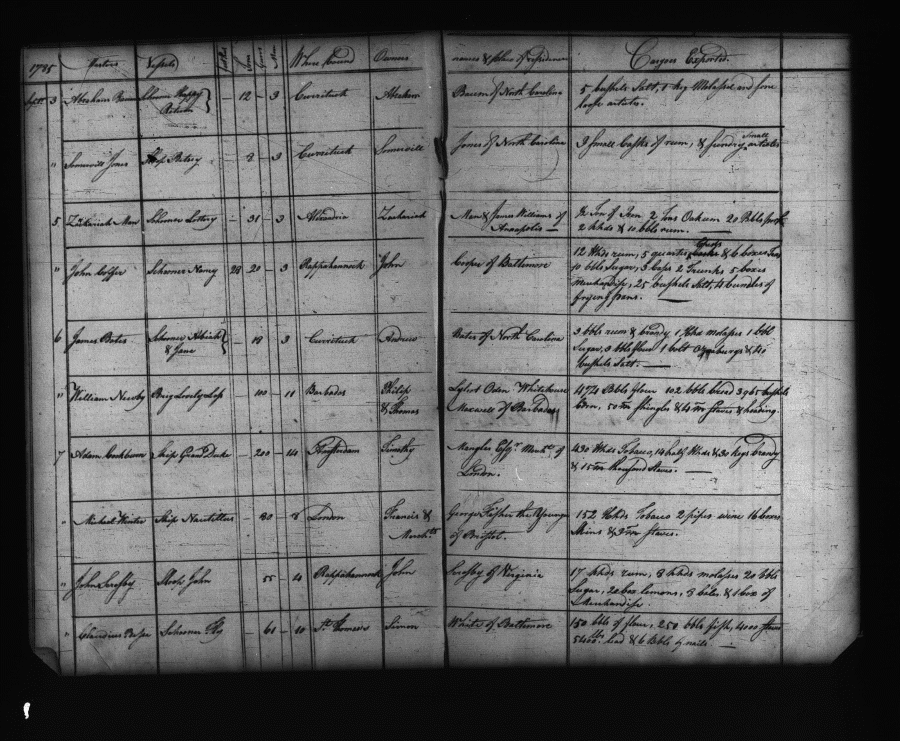 1785 Masters Vessels Guns Men Where bound Owners names & place of residence Cargoes Exported.
Sept. 3 Abraham Schooner Happy Return 12 - 3 Currituck Abraham Bacon of North Carolina 5 bushels Salt, 1 keg Molasses and some
loose articles.
" Somervill Jones Sloop Betsey - 8 - 3 Currituck Somervill Jones of North Carolina 3 Small Casks of rum, & sundry small articles
5 Zachariah Man Schooner Lottery - 31 - 3 Alexandria Zachariah Man & James Williams of
Annapolis — ½ Ton of Iron 2 Tons Oakum 20 Bbls pork
2 hhds & 10 bbls rum. —
" John Cooper Schooner Nancy 28 20 - 3 Rappahannock John Cooper of Baltimore 12 Hhds rum, 5 quarter Casks & 6 boxes
10 bbls Sugar, 3 2 Trunks 5 boxes
Merchandise, 25 bushels Salt, 4 bundles of
frying pans. —
6 James Bates Schooner & Jane - 18 3 Currituck Andrew Bates of North Carolina 3 bbls rum & brandy 1 Hhd molasses 1 bbl
Sugar, 3 bbls flour 1 bolt Oznaburgs & 40
bushels Salt. —
" William Newby Brig Lovely Lass - 100 - 11 Barbados Philip
& Thomas Oden Whitehouse
Maxwell of Barbados 1174 Bbls flour 102 bbls bread 3965 bushels
Corn, 50m Shingles & 4m Staves & heading.
7 Adam Cockburn Ship Grand Duke - 200 - 14 Amsterdam Timothy Mangles Esqr. Mercht. of
London. 430 Hhds Tobacco, 14 half Hhds & 30 kegs brandy
& 15m Staves. —
" Michael Ship Nautillus - 80 - 8 London Francis &
Merchts. George Fisher the Younger
of Bristol. 152 Hhds Tobacco 2 pipes wine 16
Skins & 3m Staves.
" John Sloop John 55 - 4 Rappahannock John of Virginia 17 hhds rum, 8 hhds molasses 20 bbls
Sugar, 20 box lemons, 3 bales & 1 box of
Merchandise
" Schooner - 61 - 10 St. Thomas Simon White of Baltimore 150 bbls of flour, 250 bbls fish, 4000 Staves
lead & 6 Bbls of nails. —